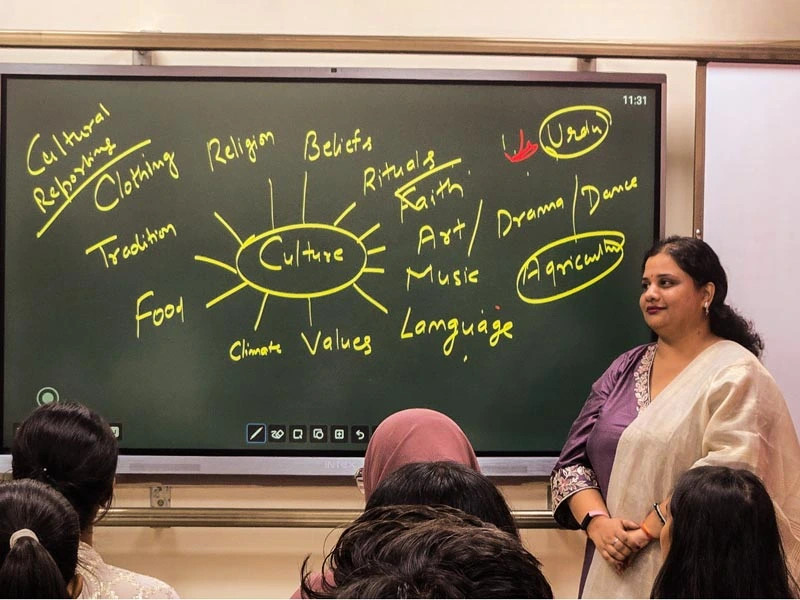 11:31
Cultural
Reporting
Clothing
Religion
Beliefs
Rituals
Faith
Urdu
Tradition
Culture
Art/
Drama/Dance
Music
Agriculture
Food
Climate
Values
Language